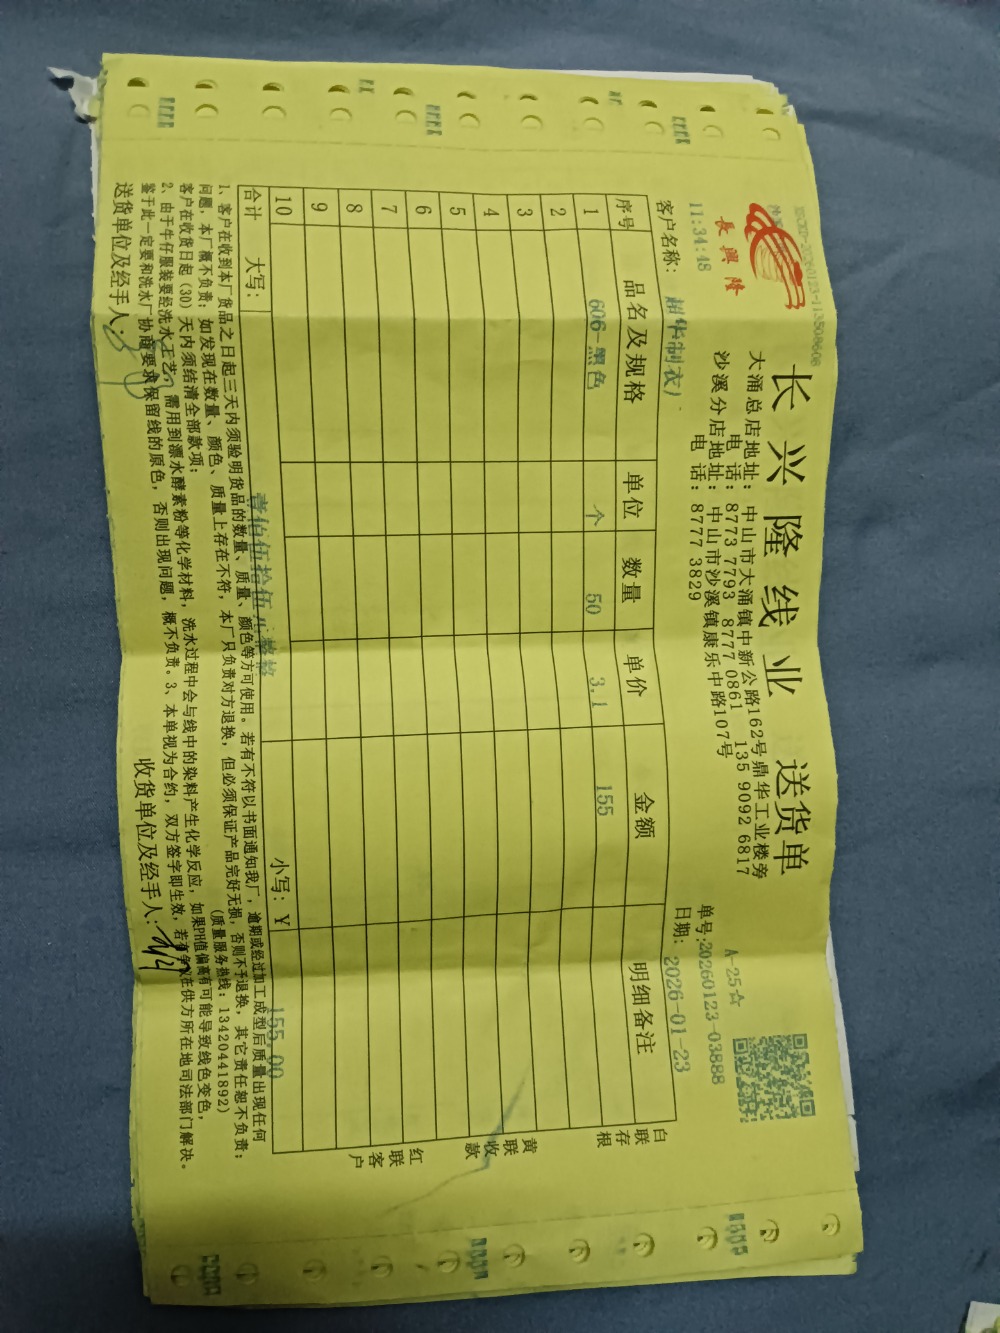 长兴隆线业 送货单
長興隆
大涌总店地址：中山市大涌镇中新公路162号鼎华工业楼旁
电话：8773 7793 8777 0861 135 9092 6817
沙溪分店地址：中山市沙溪镇康乐中路107号
电话：8777 3829
A-25☆
11:34:48
单号:20260123-03888
客户名称：
制衣)
日期：2026-01-23
序号 品名及规格 单位 数量 单价 金额 明细备注
1 606-黑色 个 50 3.1 155
2
3
4
5
6
7
8
9
10
合计 大写：壹佰伍拾伍元整 小写：¥ 155.00
白联存根
黄联收款
红联客户
1、客户在收到本厂货品之日起三天内须验明货品的数量、质量、颜色等方可使用。若有不符以书面通知我厂，逾期或经过加工成型后质量出现任何
问题，本厂概不负责；如发现在数量、颜色、质量上存在不符，本厂只负责对方退换，但必须保证产品完好无损，否则不予退换，其它责任恕不负责；
客户在收货日起（30）天内须结清全部款项； （质量服务热线：13420441892）
2、由于牛仔服装要经洗水工艺，需用到漂水酵素粉等化学材料，洗水过程中会与线中的染料产生化学反应，如果PH值偏高有可能导致线色变色，
鉴于此一定要和洗水厂协商要求保留线的原色，否则出现问题，概不负责。3、本单视为合约，双方签字即生效，若有争议在供方所在地司法部门解决。
送货单位及经手人： 收货单位及经手人：